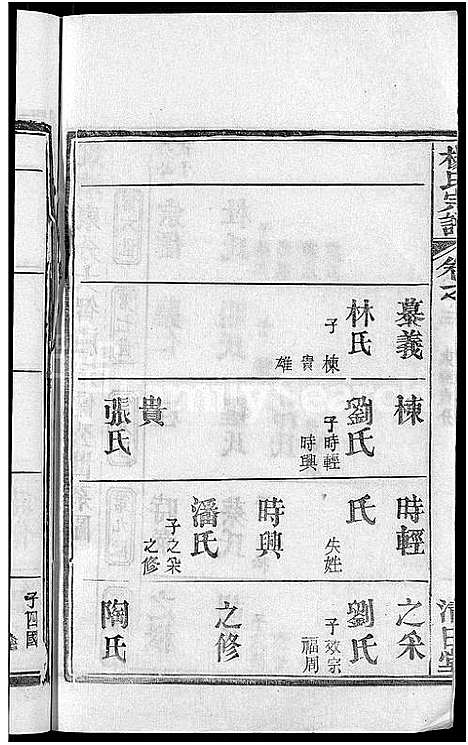 楊氏宗譜
卷之
清白堂
慕義
林氏
子棟
貴
雄
棟
劉氏
子時輕
時興
貴
張氏
時輕
氏
失姓
時興
潘氏
子之采
之修
之采
劉氏
子效宗
福周
之修
陶氏
子四國